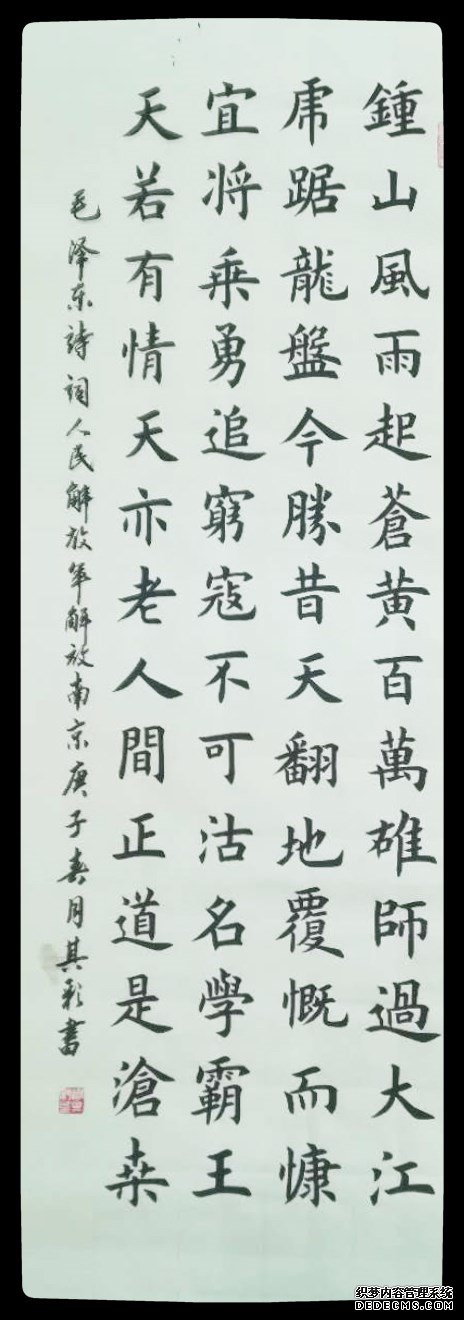 鍾山風雨起蒼黄百萬雄師過大江
虎踞龍盤今勝昔天翻地覆慨而慷
宜將乘勇追窮寇不可沽名學霸王
天若有情天亦老人間正道是滄桒
毛泽东詩词人民解放军解放南京庚子春月其彩書
织梦内容管理系统
DEDECMS.COM